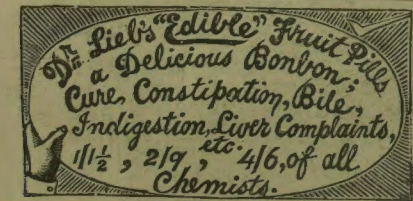 Dr. Lieb's "Edible" Fruit Pills
a Delicious Bonbon;
Cure, Constipation, Bile,
Indigestion, Liver Complaints,
etc.
1/1½, 2/9, 4/6, of all
Chemists.